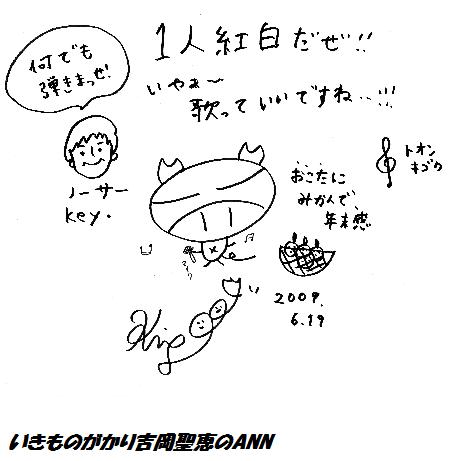 1人紅白だぜ!!
いやぁ〜
歌っていいですね…!!!
何でも
弾きまっせ!
ノーサー
key.
トオン
キゴウ
おこたに
みかんで、
年末感
マイク
2009.
6.19
いきものがかり吉岡聖恵のANN